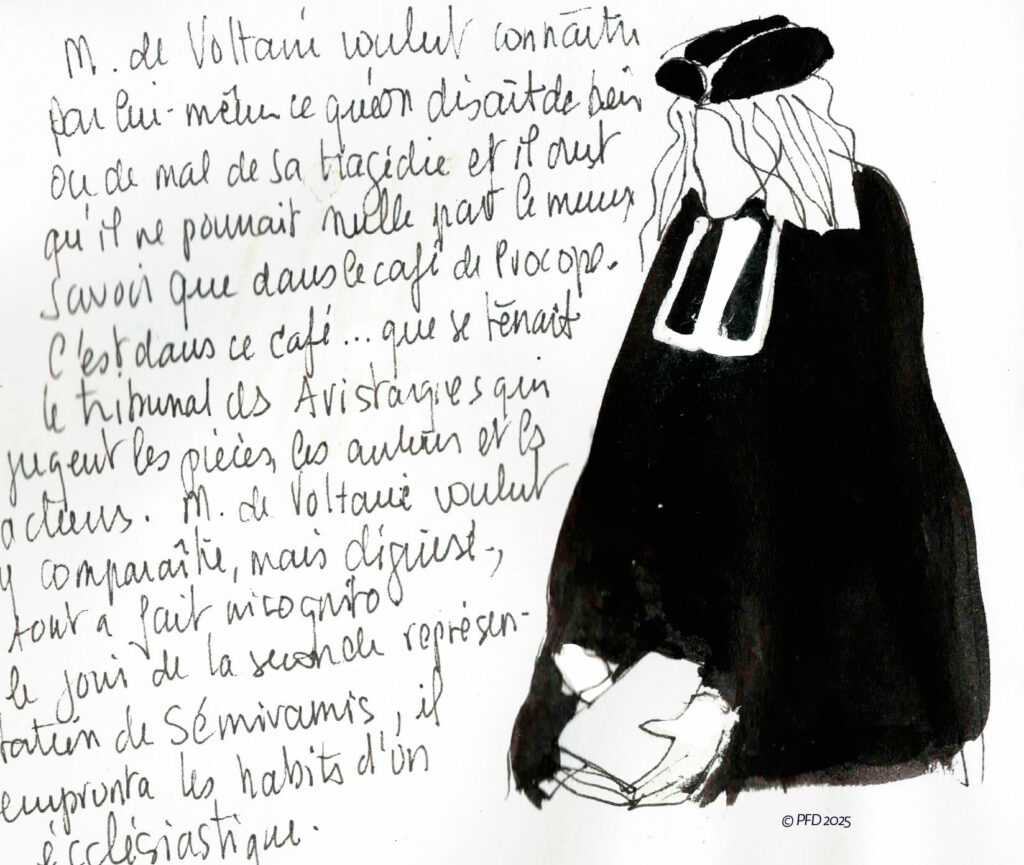 M. de Voltaire voulut connaître
par lui-même ce qu'on disait de bien
ou de mal de sa tragédie et il crut
qu'il ne pouvait nulle part le mieux
savoir que dans le café de Procope.
C'est dans ce café... que se tenait
le tribunal des Aristarques qui
jugent les pièces, les auteurs et les
acteurs. M. de Voltaire voulut
y comparaître, mais déguisé,
tout à fait incognito
le jour de la seconde représen-
tation de Sémiramis, il
emprunta les habits d'un
écclésiastique.
© PFD 2025